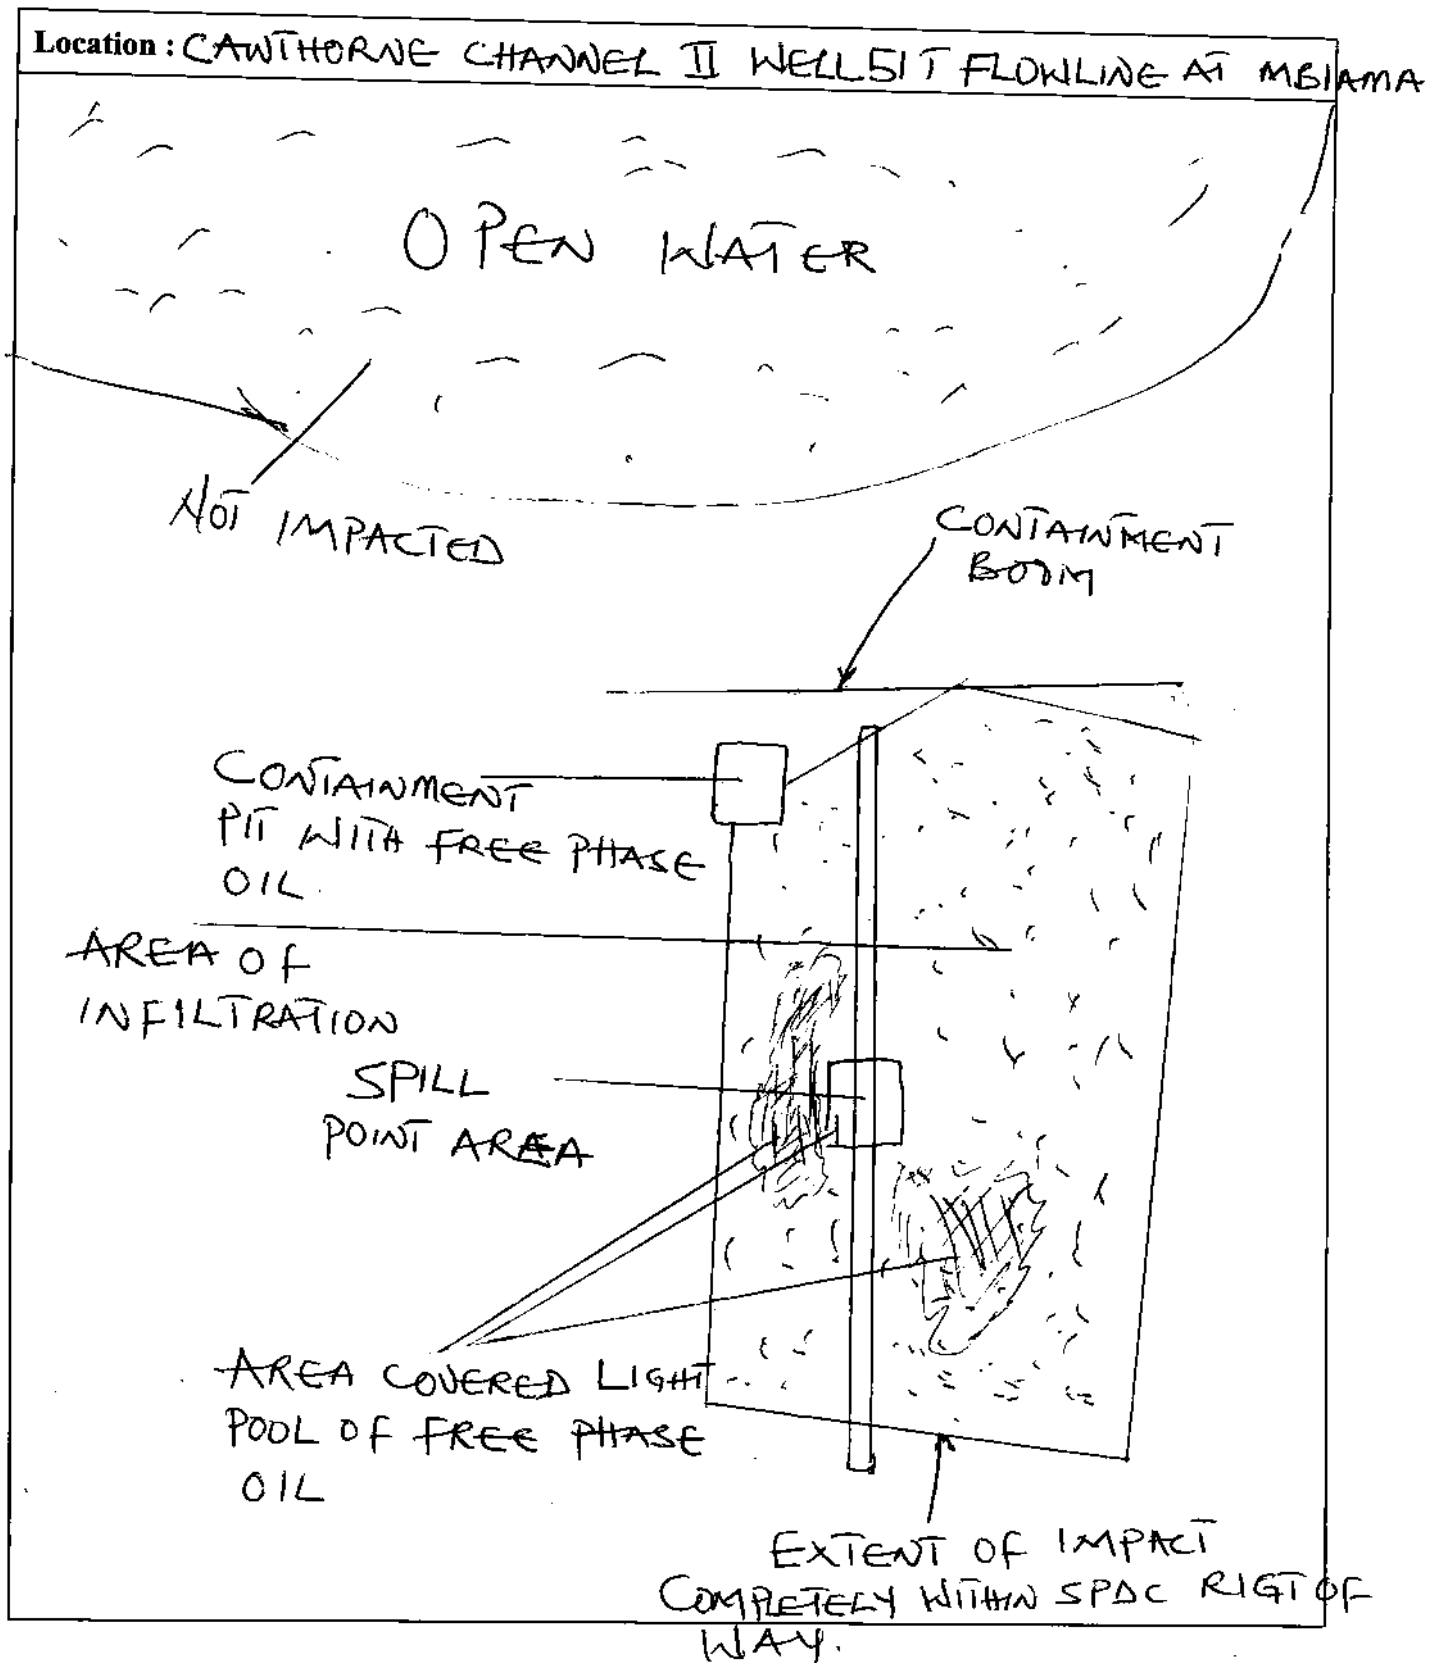 Location : CAWTHORNE CHANNEL II WELL 51T FLOWLINE AT MBIAMA
OPEN WATER
NOT IMPACTED
CONTAINMENT
BOOM
CONTAINMENT
PIT WITH FREE PHASE
OIL.
AREA OF
INFILTRATION
SPILL
POINT AREA
AREA COVERED LIGHT
POOL OF FREE PHASE
OIL
EXTENT OF IMPACT
COMPLETELY WITHIN SPDC RIGT OF
WAY.